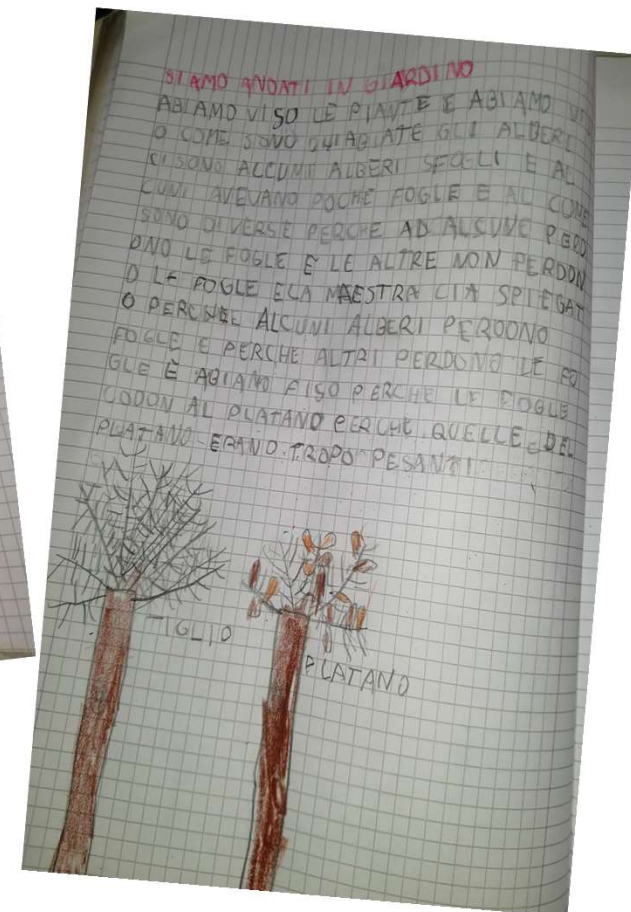 SIAMO ANDATI IN GIARDINO
ABIAMO VISO LE PIANTE E ABIAMO VI
O COME SONO GLI ALBERI
CI SONO ALCUNI ALBERI SFOGLI E AL
CUNI AVEVANO POCHE FOGLE E AL CUNE
SONO DIVERSE PERCHE AD ALCUNE PERD
ONO LE FOGLE E LE ALTRE NON PERDON
O LE FOGLE ELA MAESTRA CIA SPIEGAT
O PERCHE ALCUNI ALBERI PERDONO
FOGLE E PERCHE ALTRI PERDONO LE FO
GLE È ABIAMO FISO PERCHE LE FOGLE
CODON AL PLATANO PERCHE QUELLE DEL
PLATANO ERANO TROPO PESANTI
TIGLIO
PLATANO